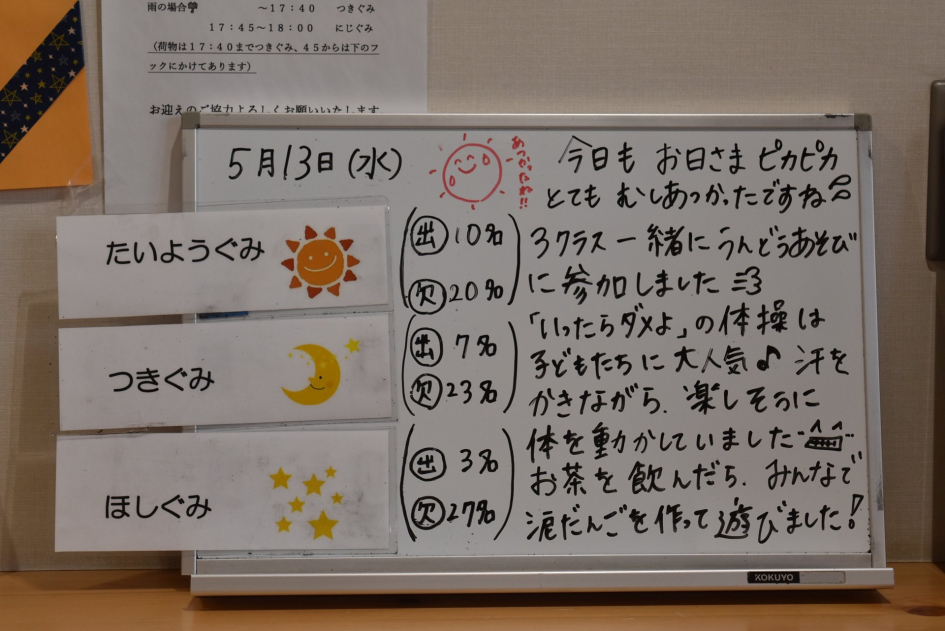 雨の場合 ～１７：４０ つきぐみ
１７：４５～１８：００ にじぐみ
（荷物は１７：４０までつきぐみ、４５からは下のフ
ックにかけてあります）
お迎えのご協力よろしくお願いいたします
5月13日(水)
あつかったね!!
今日も お日さま ピカピカ
とても むしあつかったですね
たいようぐみ
出 10%
欠 20%
つきぐみ
出 7%
欠 23%
ほしぐみ
出 3%
欠 27%
3クラス一緒にうんどうあそび
に参加しました
「いったらダメよ」の体操は
子どもたちに大人気♪ 汗を
かきながら、楽しそうに
体を動かしていました
お茶を飲んだら、みんなで
泥だんごを作って遊びました!
KOKUYO